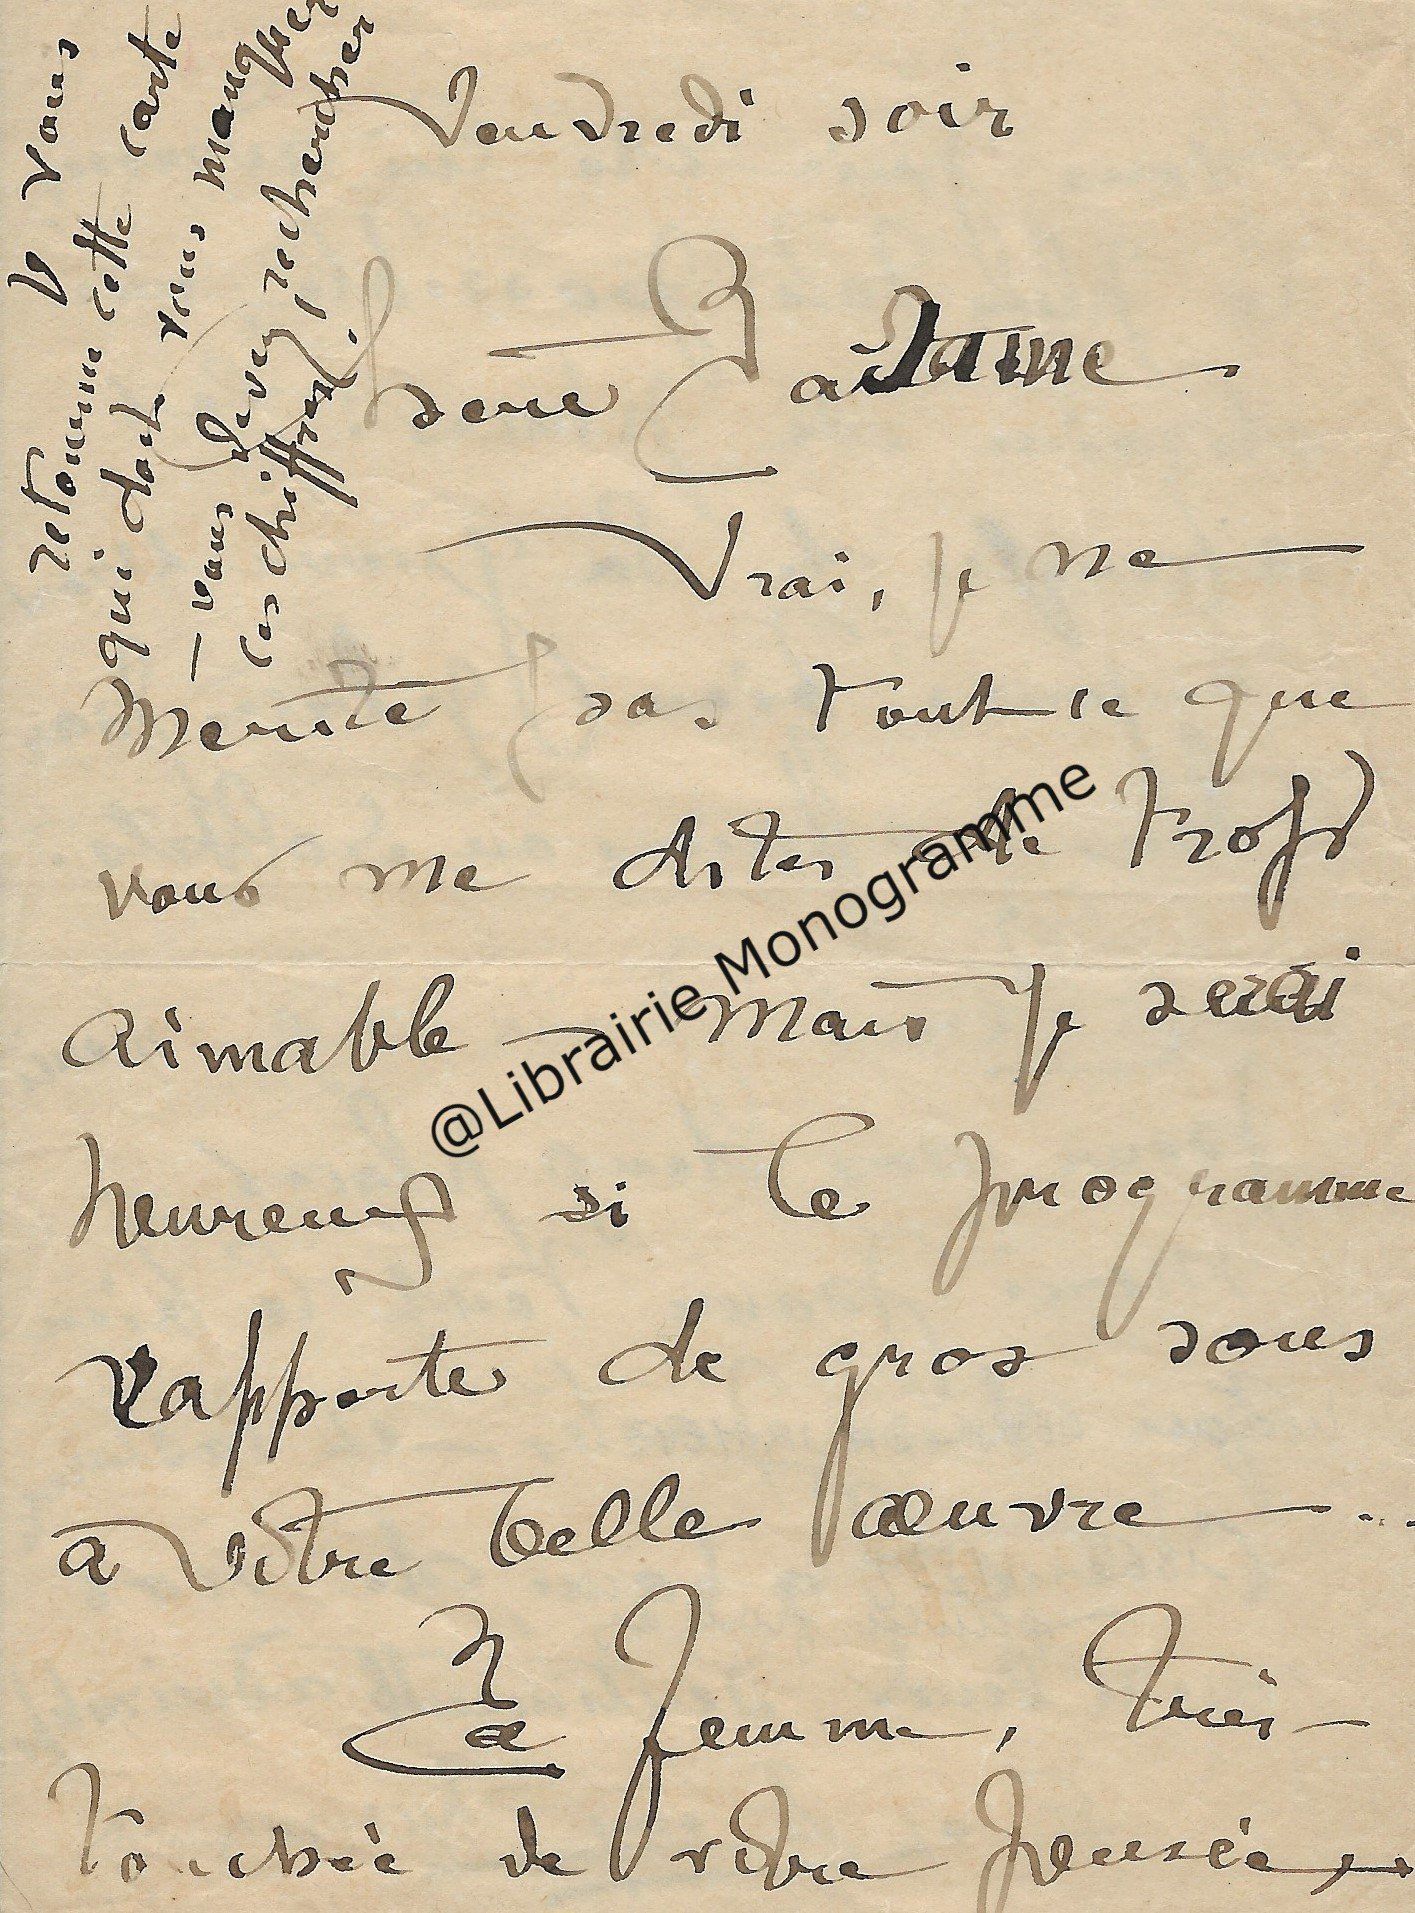 Vendredi soir
Chere Madame
Vrai, je ne
merite pas tout ce que
vous me dites de trop
aimable — mais je serai
heureux si le programme
rapporte de gros sous
à votre belle œuvre ...
Ma femme, très
touchée de votre pensée,
Je vous
retourne cette carte
qui doit vous manquer
— vous devez rechercher
ces chiffres.
@Librairie Monogramme